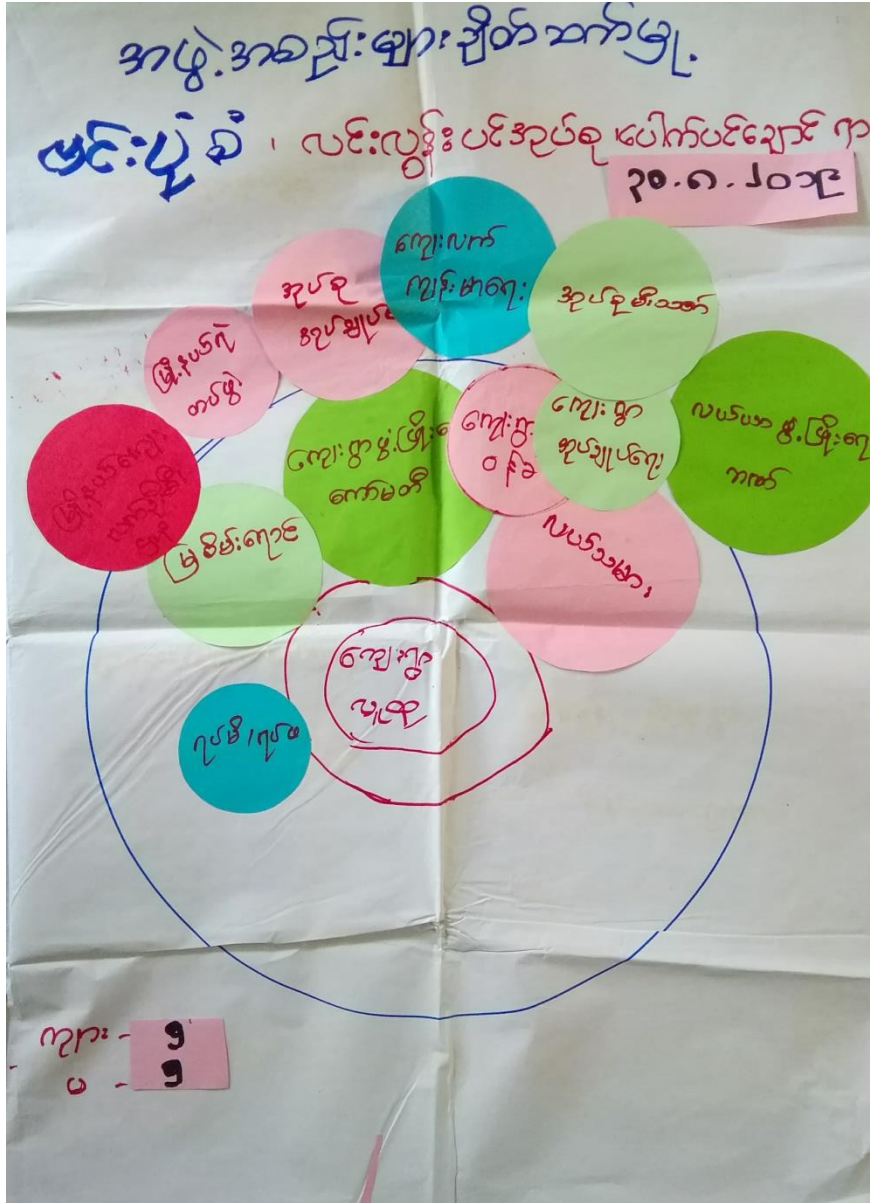 အဖွဲ့အစည်းများချိတ်ဆက်မှု
ဗင်းပုံစံ၊ လင်းလွန်းပင်အုပ်စု၊ ပေါက်ပင်ချောင် ရွာ
၃၀.၈.၂၀၁၉
ကျေးလက်
ကျန်းမာရေး
အုပ်စု
အုပ်ချုပ်ရေး
အုပ်စုမီးသတ်
မြို့နယ်ရဲ
တပ်ဖွဲ့
ကျေးရွာဖွံ့ဖြိုးရေး
ကော်မတီ
ကျေးရွာ
ကျေးရွာ
အုပ်ချုပ်ရေး
လယ်ယာဖွံ့ဖြိုးရေ
ဘဏ်
မြို့နယ်ကျေး
မြစိမ်းရောင်
လယ်သမား
ကျေးရွာ
လူထု
ရပ်မိ၊ရပ်ဖ
ကျား - ၅
မ - ၅